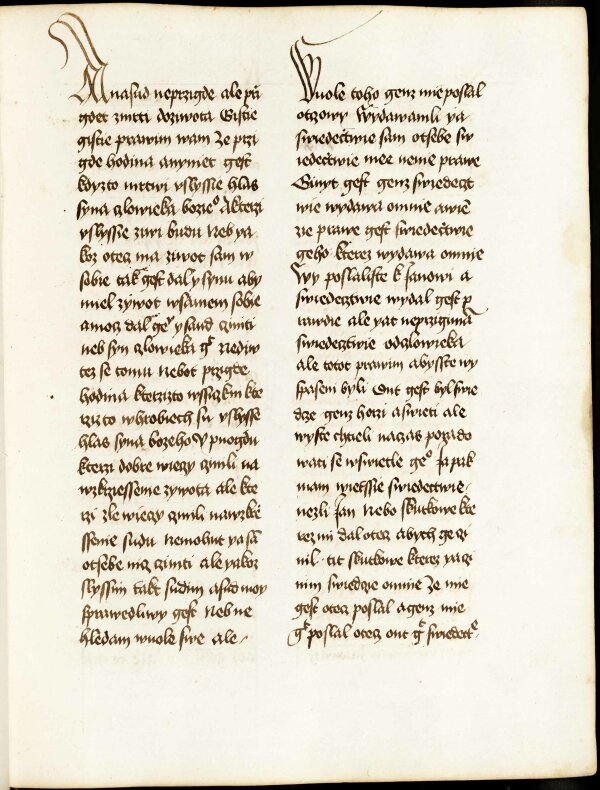 A nasud neprzigde ale przi
gdet zmrti doziwota Gistie
gistie prawim wam ze przi
gde hodina anyniet gest
kdyzto mrtwi vslyssie hlas
syna czlowieka bozieo Akterzi
vslyssie ziwi budu Neb ya
koz otecz ma ziwot sam w
sobie tak gest dal y synu aby
miel zywot wsamem sobie
amocz dal gest y saud cziniti
neb syn czlowieka gt Nediw
tez se tomu nebot przigde
hodina kterzizto wssiczkni kte
rzizto whrobiech su vslysse
hlas syna bozieho y puogdu
kterzi dobre wieczy czinili na
wzkrziessenie zywota ale kte
rzi zle wieczy czinili nawzkrzie
ssenie sudu nemohut ya sam
otsebe nicz cziniti ale yakoz
slyssim takt sudim asud moy
sprawedliwy gest Neb ne
hledam wuole swe ale
Wuole toho genz mie poslal
otczowy Wydawamli ya
swiedectwie sam otsebe sw
iedectwie mee nenie prawe
Ginyt gest genz swiedeczt
wie wydawa omnie awiem
zie prawe gest swiedectwie
geho kterez wydawa omnie
Wy poslaliste k Janowi a
swiedecztwie wydal gest p
rawdie ale yat neprzigima
swiedecztwie odczlowieka
ale totot prawim abysste wy
spaseni byli Ont gest byl swie
cze genz horzi aswieti ale
wyste chtieli naczas porado
wati se wswietle geo Ja pak
mam wietssie swiedectwie
nezli Jan Nebo skutkowe kte
rez mi dal otecz abych ge czi
nil tit skutkowe kterez ya czi
nim swiedcze omnie ze mie
gest otecz poslal agenz mie
gt poslal otecz ont gt swiedect